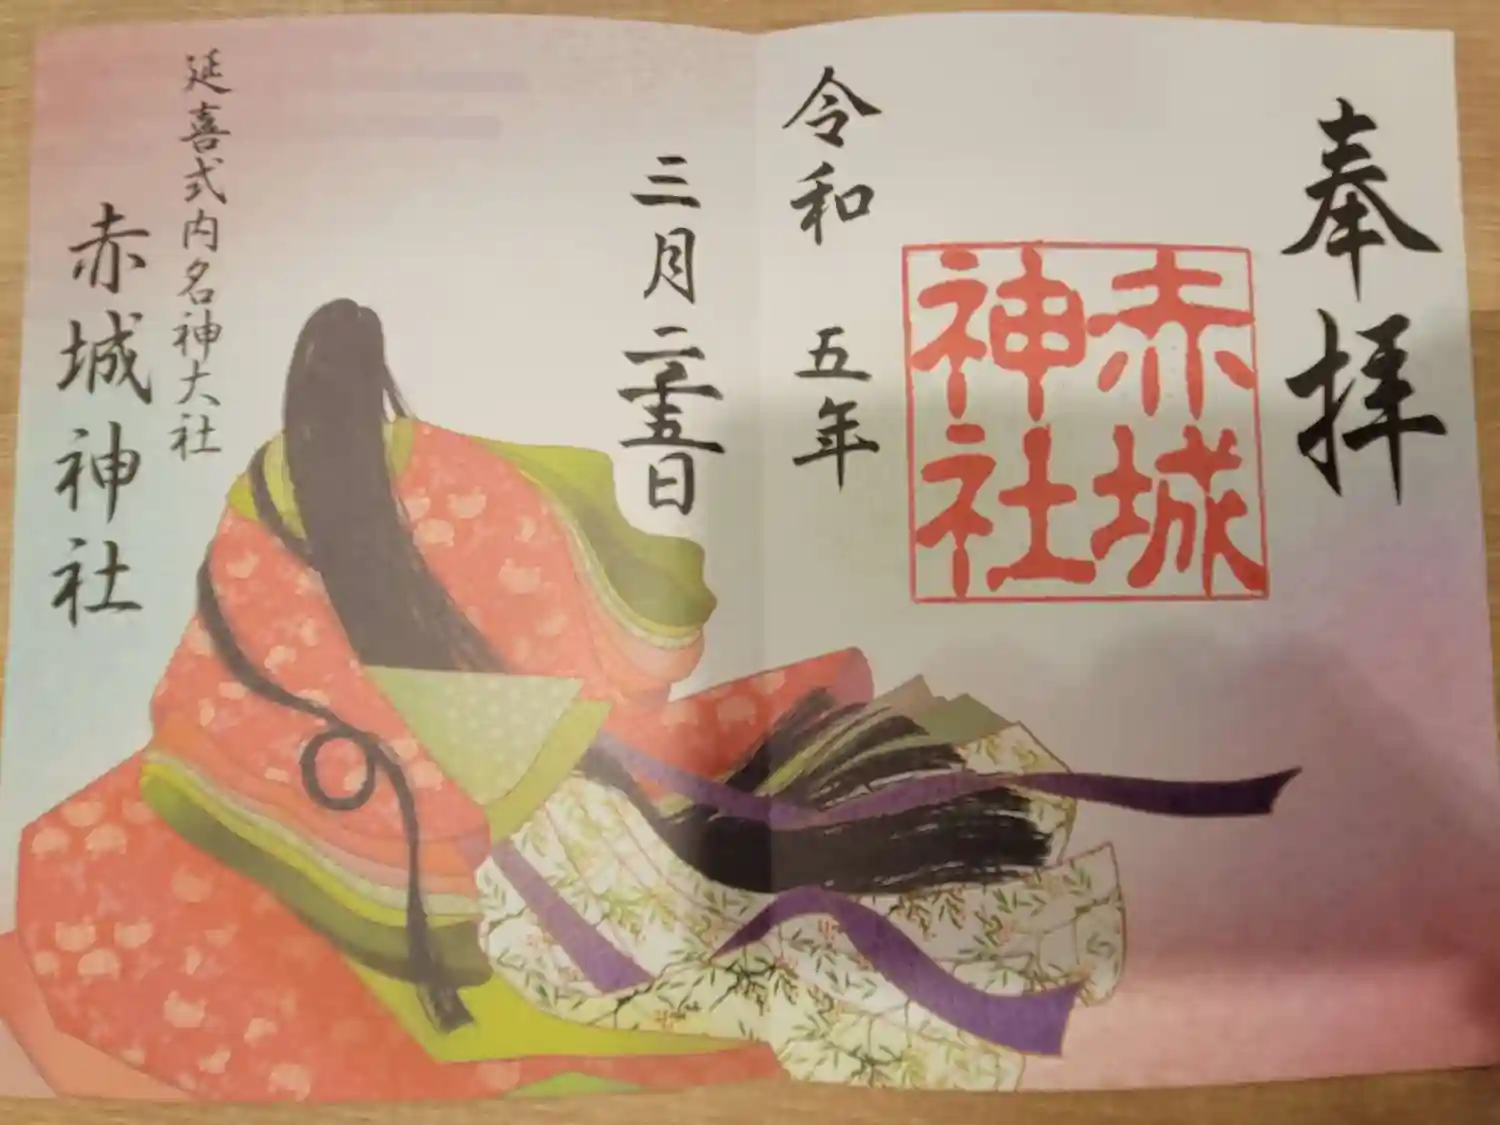 奉拝
赤城
神社
令和 五年
三月二十五日
延喜式内名神大社
赤城神社